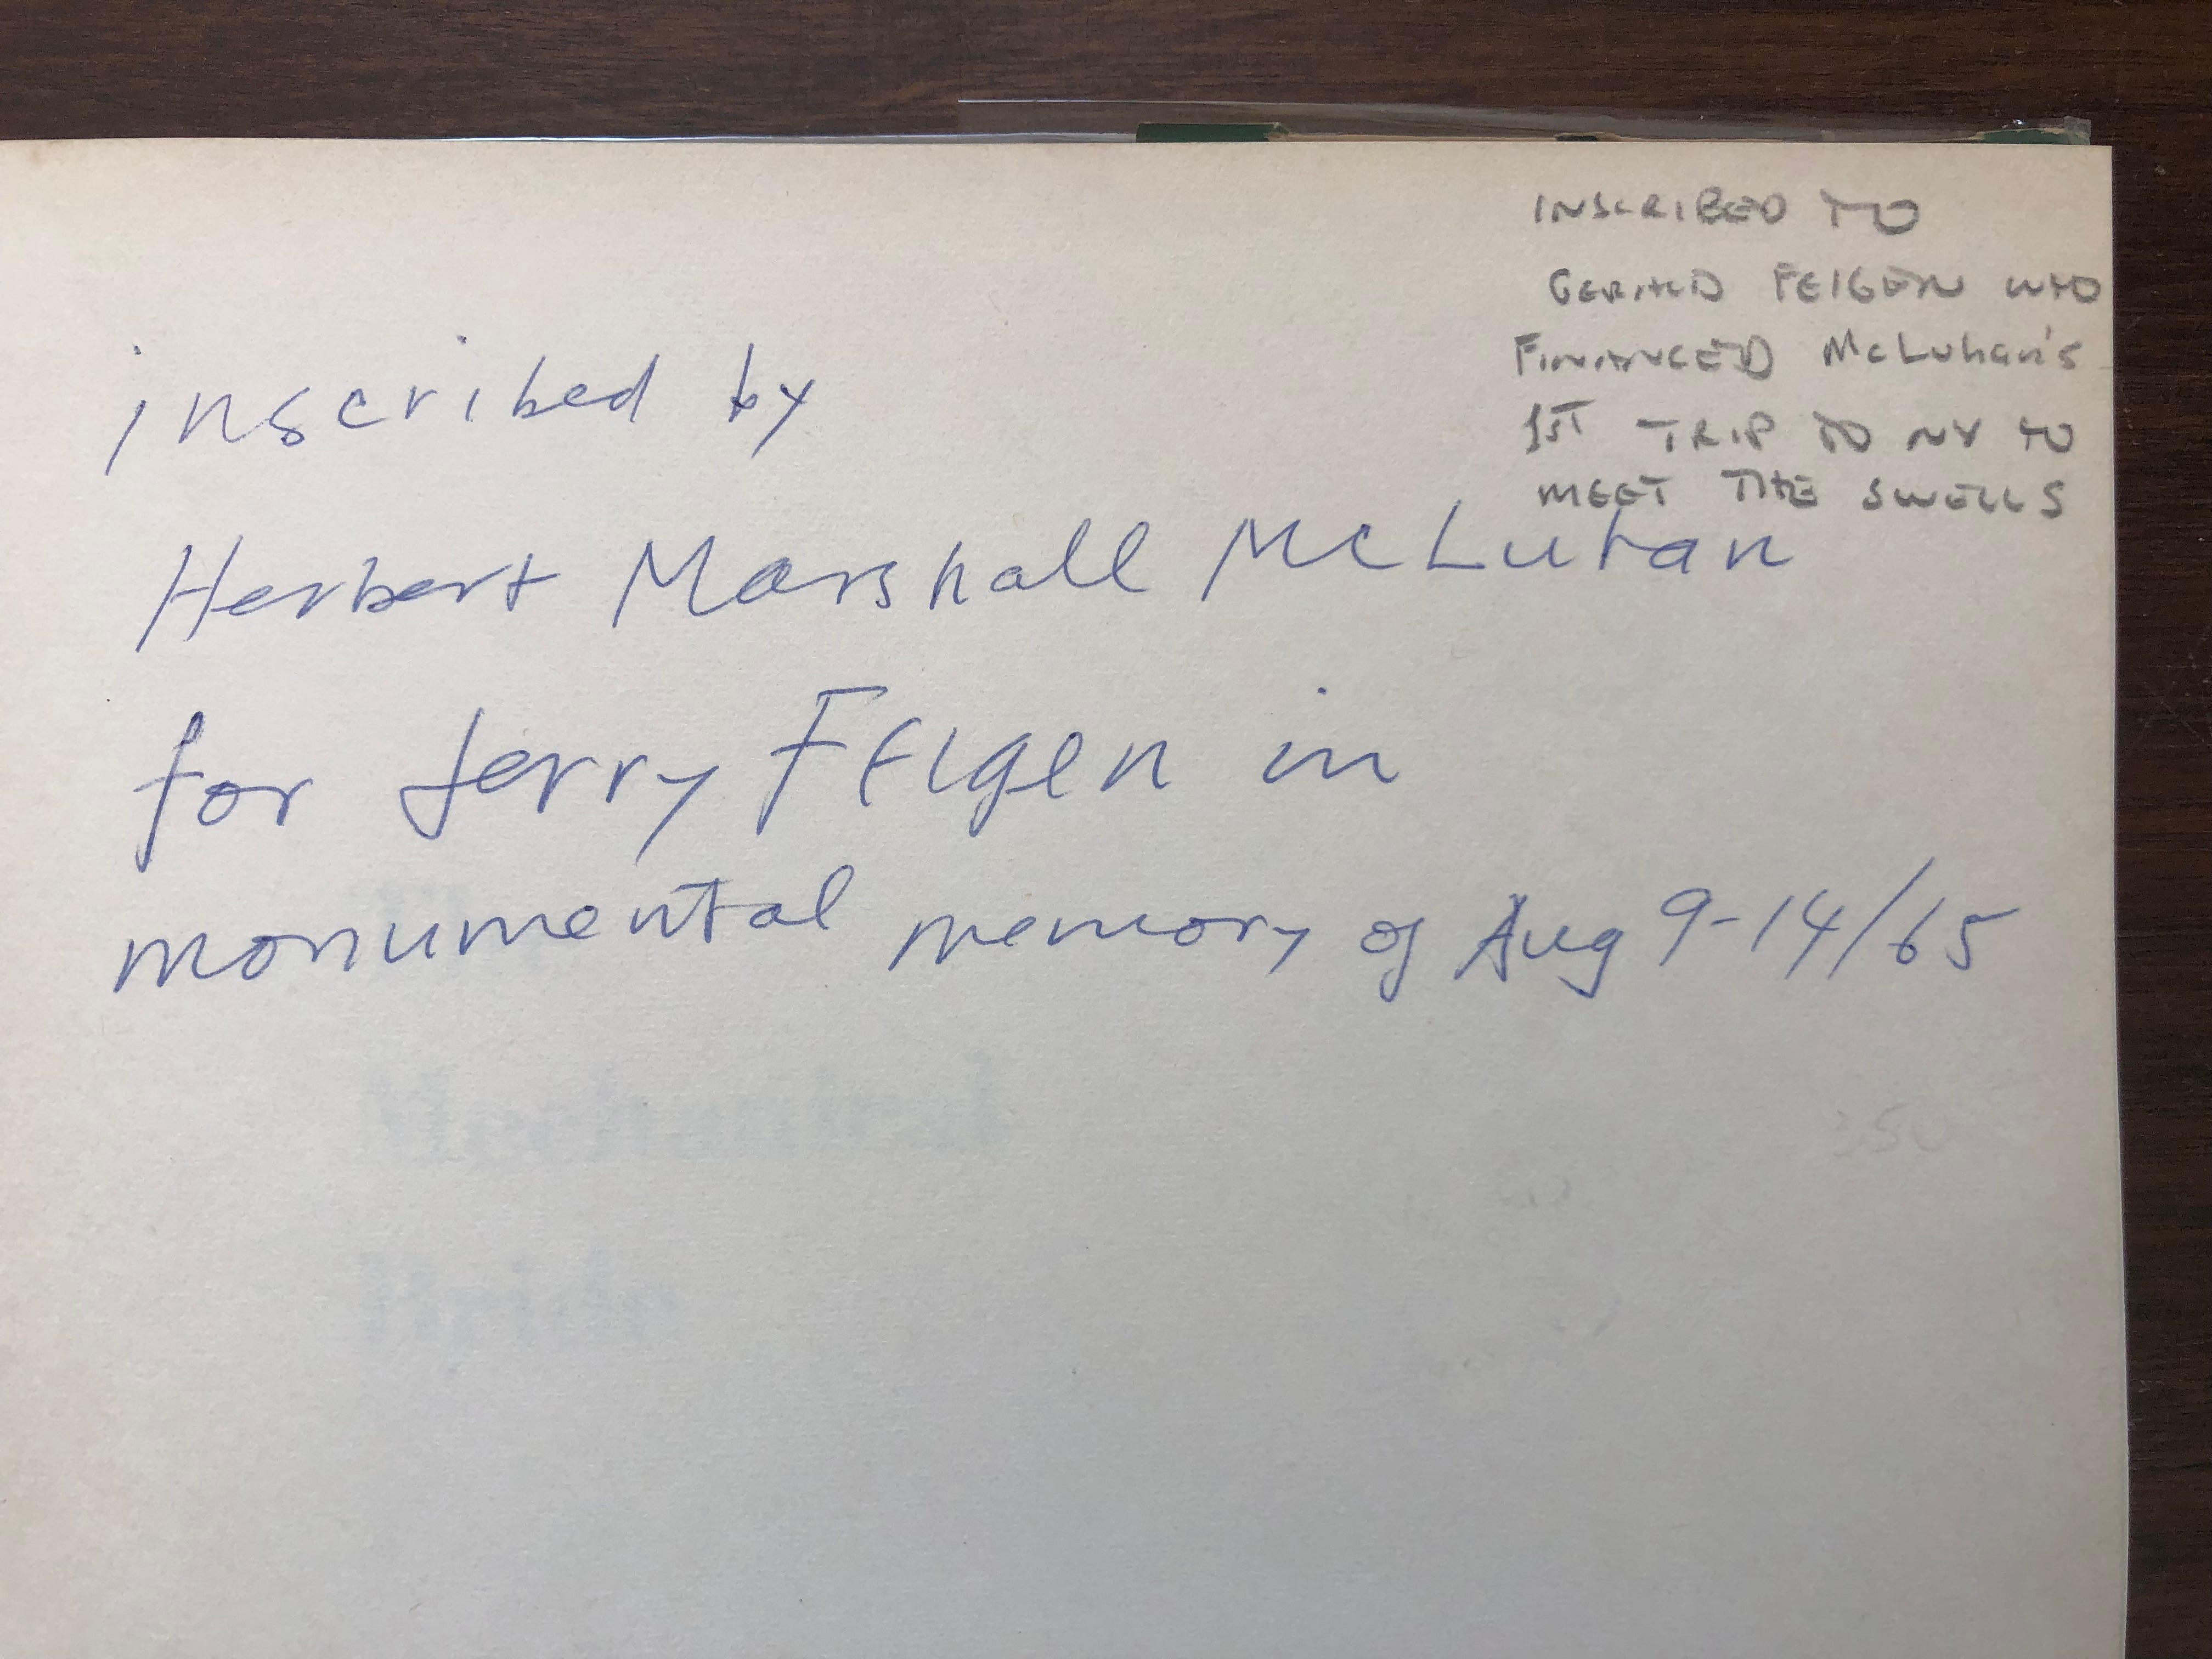 INSCRIBED TO
GERALD FEIGEN WHO
FINANCED McLuhan's
1ST TRIP TO NY TO
MEET THE SWELLS
inscribed by
Herbert Marshall McLuhan
for Jerry Feigen in
monumental memory of Aug 9-14/65
Mechanical
Bride
350